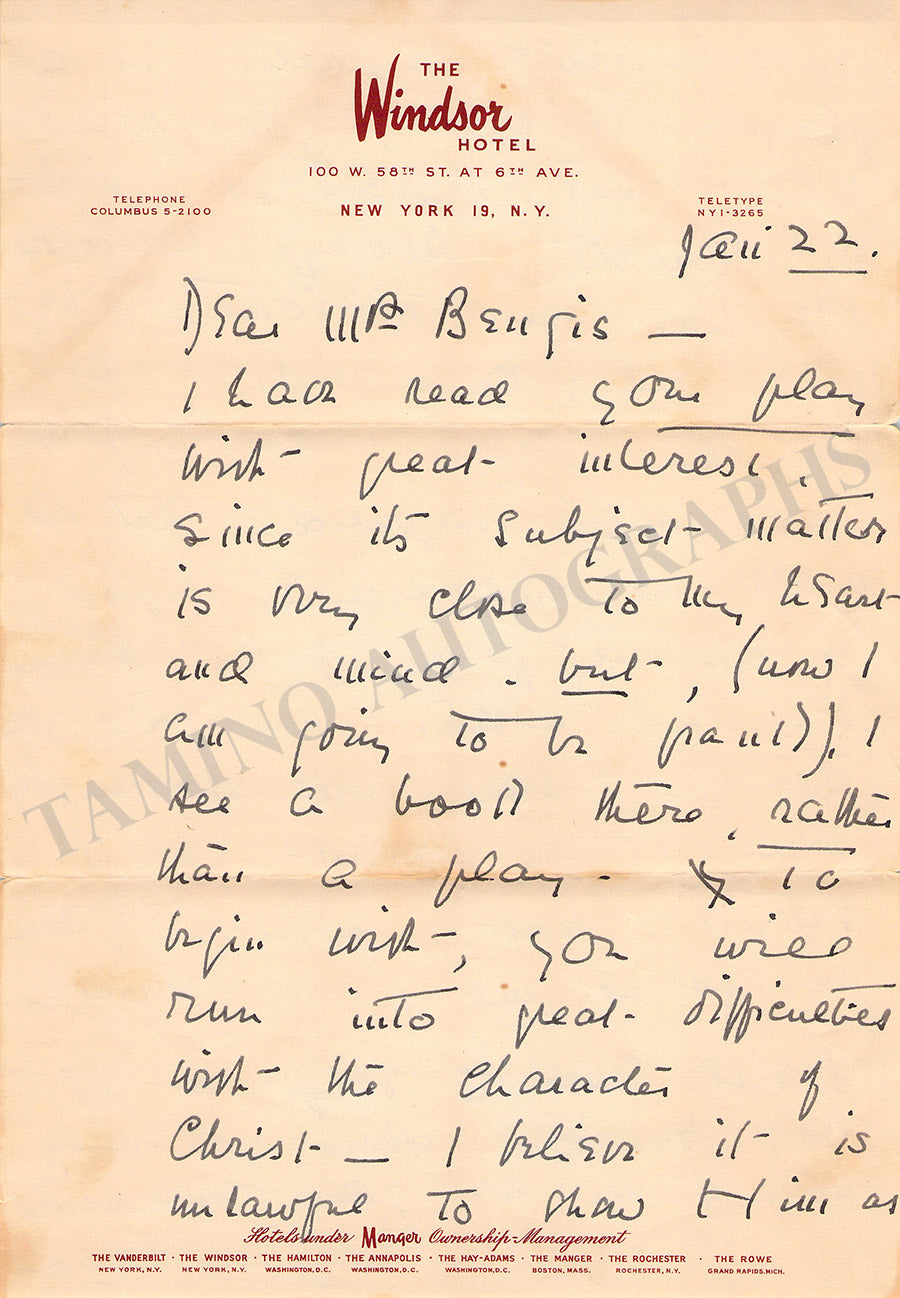 THE
Windsor
HOTEL
100 W. 58TH ST. AT 6TH AVE.
TELEPHONE
COLUMBUS 5-2100
NEW YORK 19, N.Y.
TELETYPE
NY1-3265
Jan 22.
Dear Mr Bengis —
I have read your play
with great interest.
Since its subject matter
is very close to my heart
and mind. but, (now I
am going to be frank), I
see a book there, rather
than a play. To
begin with, you will
run into great difficulties
with the character of
Christ — I believe it is
unlawful to show Him as
Hotels under Manger Ownership-Management
THE VANDERBILT · THE WINDSOR · THE HAMILTON · THE ANNAPOLIS · THE HAY-ADAMS · THE MANGER · THE ROCHESTER · THE ROWE
NEW YORK, N.Y. NEW YORK, N.Y. WASHINGTON, D.C. WASHINGTON, D.C. WASHINGTON, D.C. BOSTON, MASS. ROCHESTER, N.Y. GRAND RAPIDS, MICH.
TAMINO AUTOGRAPHS